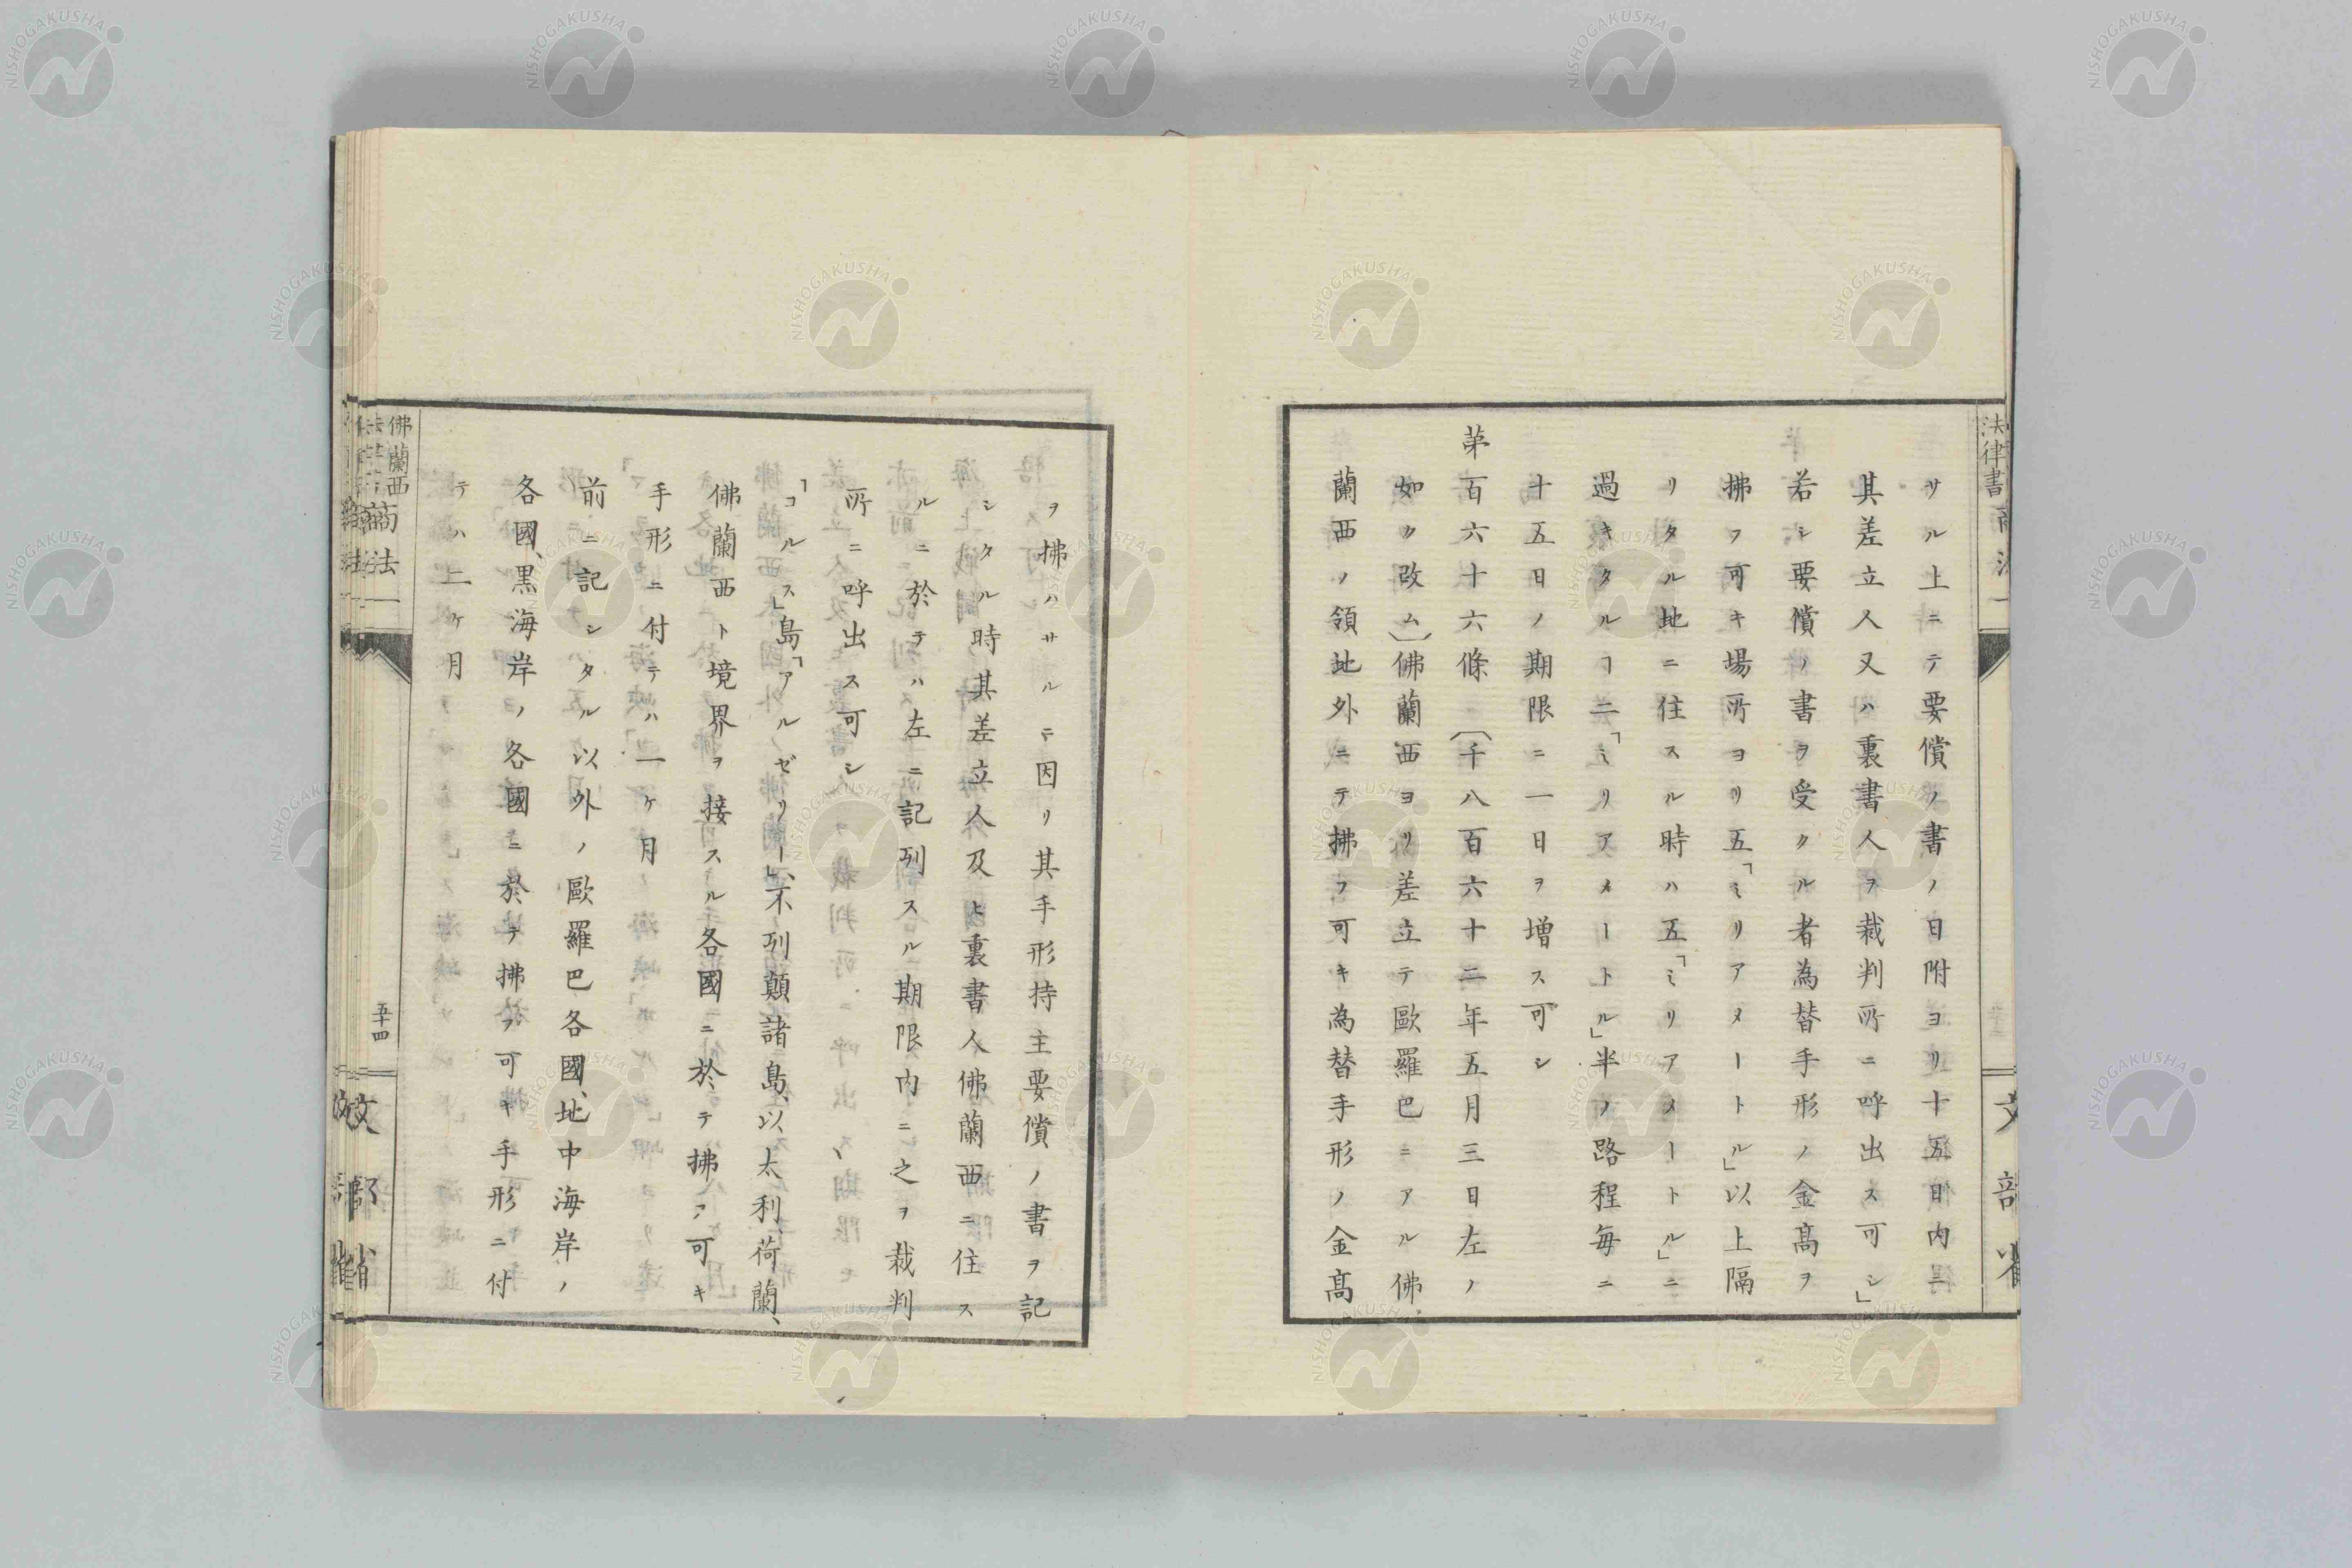 サル上ニテ要償ノ書ノ日附ヨリ十五日内ニ
其差立人又ハ裏書人ヲ裁判所ニ呼出ス可シ」
若シ要償ノ書ヲ受クル者為替手形ノ金高ヲ
拂フ可キ場所ヨリ五「ミリアメートル」以上隔
リタル地ニ住スル時ハ五「ミリアメートル」ニ
過キタルヿ二「ミリアメートル」半ノ路程毎ニ
十五日ノ期限ニ一日ヲ増ス可シ
第百六十六條〔千八百六十二年五月三日左ノ
如ク改ム〕佛蘭西ヨリ差立テ歐羅巴ニアル佛
蘭西ノ領地外ニテ拂フ可キ為替手形ノ金高
ヲ拂ハサルニ因リ其手形持主要償ノ書ヲ記
シタル時其差立人及ヒ裏書人佛蘭西ニ住ス
ルニ於テハ左ニ記列スル期限内ニ之ヲ裁判
所ニ呼出ス可シ
「コルス」島「アルゼリー」、不列顛諸島、以太利、荷蘭、
佛蘭西ト境界ヲ接スル各國ニ於テ拂フ可キ
手形ニ付テハ一ケ月
前ニ記シタル以外ノ歐羅巴各國、地中海岸ノ
各國、黒海岸ノ各國ニ於テ拂フ可キ手形ニ付
テハ二ケ月
佛蘭西
商法一
五十四
文部省
法律書
NISHOGAKUSHA